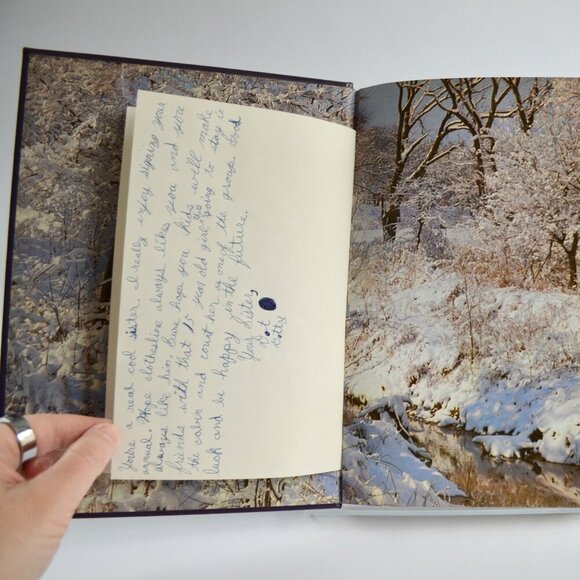 You're a real cool sister. I really enjoy signing your
annual. Hope clothesline always likes you and you
always like him. Sure hope you kids will make
friends with that 15 year old girl going to stay in
the cabin and count her as one of the group. Good
luck and be happy in the future.
Your Sister,
Dot
Dotty